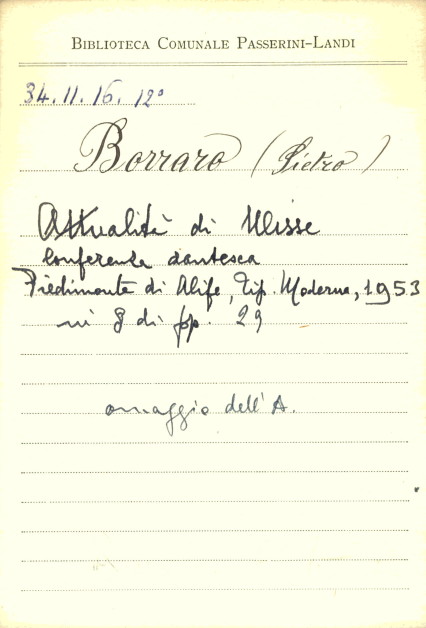 BIBLIOTECA COMUNALE PASSERINI-LANDI
34.II.16.12°
Borraro (Pietro)
Attualità di Ulisse
Conferenza dantesca
Piedimonte di Alife, Tip. Moderna, 1953
in 8 di pp. 29
omaggio dell'A.